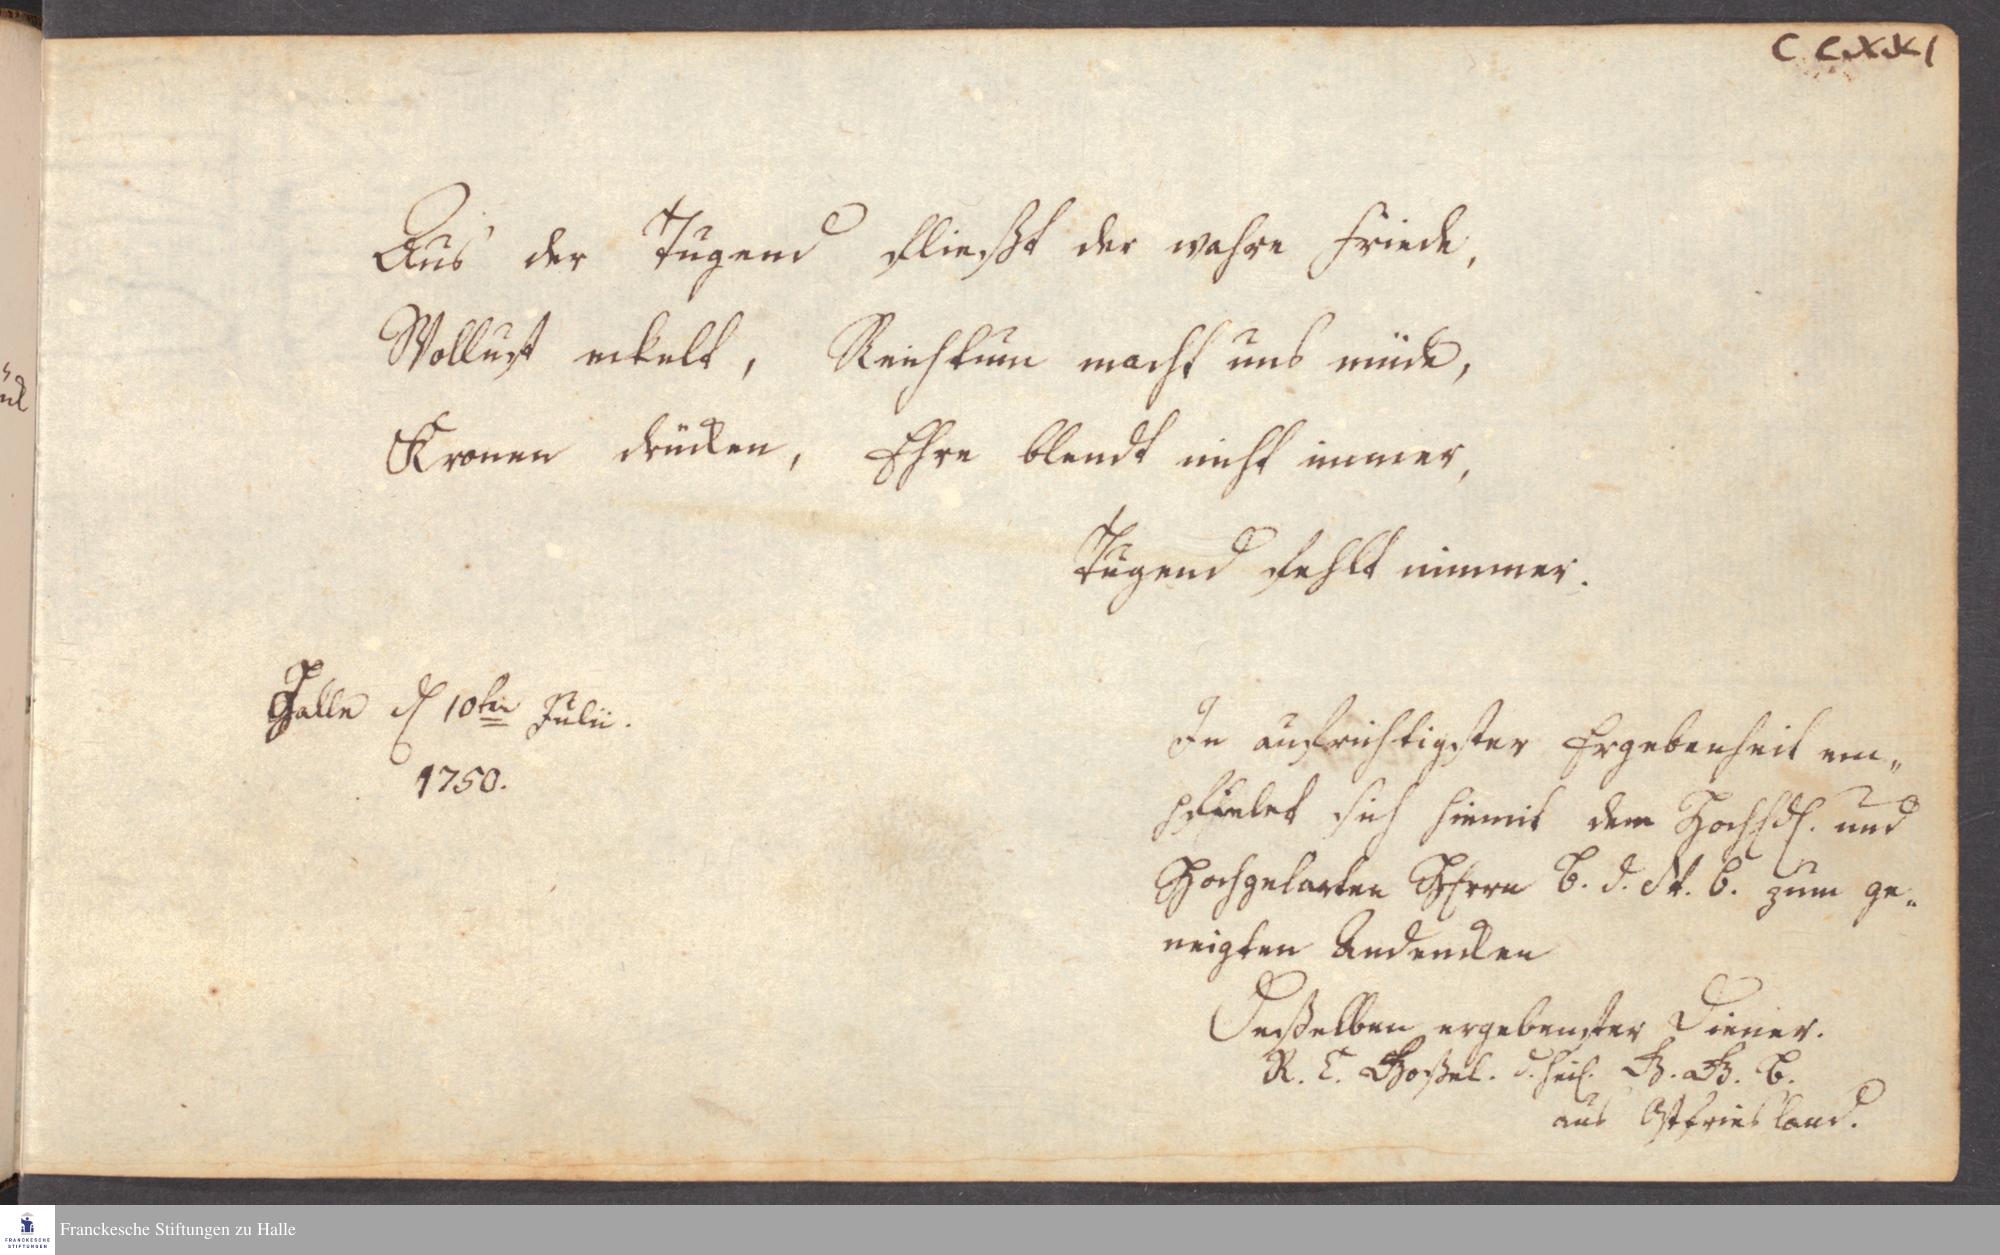 CCXXI
Aus der Tugend fließt der wahre Friede,
Wollust eckelt, Reichtum macht uns müde,
Kronen drücken, Ehre blendt nicht immer,
Tugend fehlt nimmer.
Halle d 10ten Julii.
1750.
In aufrichtigster Ergebenheit em„
pfielet sich hiemit dem Hoch und
Hochgelarten Herrn B. d. St. B. zum ge„
neigten Andencken
Deßelben ergebenster Diener.
R. E. d. heil. G. G. B.
aus Ostfriesland.
Franckesche Stiftungen zu Halle
FRANCKESCHE
STIFTUNGEN